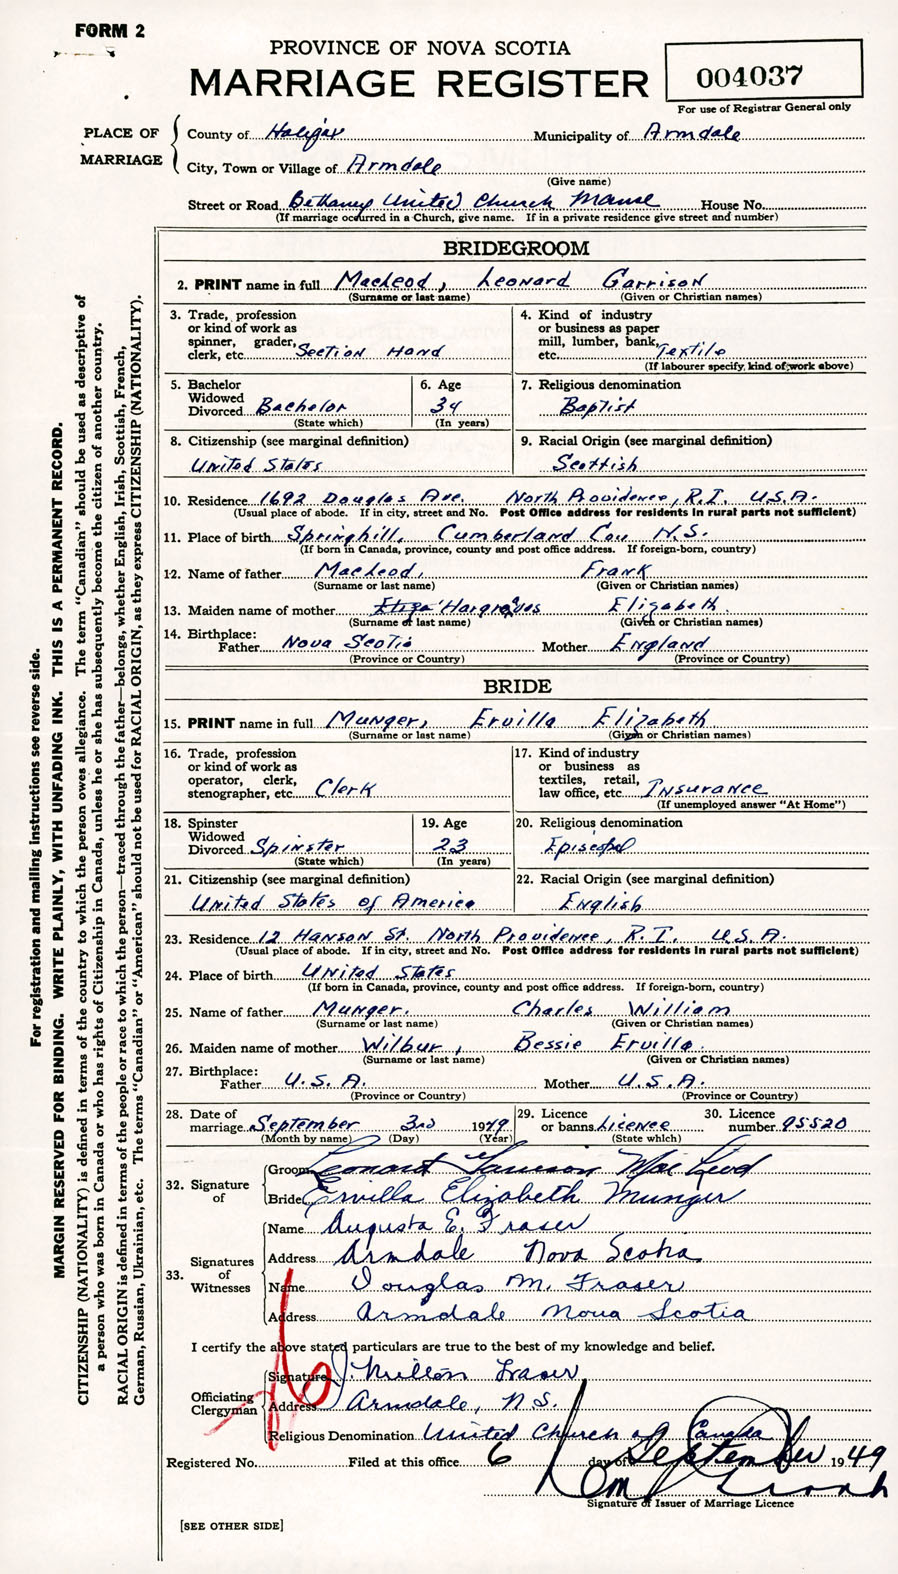 FORM 2
PROVINCE OF NOVA SCOTIA
MARRIAGE REGISTER
004037
For use of Registrar General only
PLACE OF MARRIAGE
County of Halifax Municipality of Armdale
City, Town or Village of Armdale
(Give name)
Street or Road Bethany United Church Manse House No.
(If marriage occurred in a Church, give name. If in a private residence give street and number)
BRIDEGROOM
2. PRINT name in full MacLeod, Leonard Garrison
(Surname or last name) (Given or Christian names)
3. Trade, profession or kind of work as spinner, grader, clerk, etc. Section Hand
4. Kind of industry or business as paper mill, lumber, bank, etc. Textile
(If labourer specify kind of work above)
5. Bachelor Widowed Divorced Bachelor
(State which)
6. Age 34
(In years)
7. Religious denomination
Baptist
8. Citizenship (see marginal definition)
United States
9. Racial Origin (see marginal definition)
Scottish
10. Residence 1692 Douglas Ave. North Providence, R.I. U.S.A.
(Usual place of abode. If in city, street and No. Post Office address for residents in rural parts not sufficient)
11. Place of birth Springhill, Cumberland Cou N.S.
(If born in Canada, province, county and post office address. If foreign-born, country)
12. Name of father MacLeod, Frank
(Surname or last name) (Given or Christian names)
13. Maiden name of mother Eliza Hargreaves Elizabeth
(Surname or last name) (Given or Christian names)
14. Birthplace:
Father Nova Scotia Mother England
(Province or Country) (Province or Country)
BRIDE
15. PRINT name in full Munger, Ervilla Elizabeth
(Surname or last name) (Given or Christian names)
16. Trade, profession or kind of work as operator, clerk, stenographer, etc. Clerk
17. Kind of industry or business as textiles, retail, law office, etc. Insurance
(If unemployed answer "At Home")
18. Spinster Widowed Divorced Spinster
(State which)
19. Age 23
(In years)
20. Religious denomination
Episcopal
21. Citizenship (see marginal definition)
United States of America
22. Racial Origin (see marginal definition)
English
23. Residence 12 Hanson St. North Providence, R.I. U.S.A.
(Usual place of abode. If in city, street and No. Post Office address for residents in rural parts not sufficient)
24. Place of birth United States
(If born in Canada, province, county and post office address. If foreign-born, country)
25. Name of father Munger, Charles William
(Surname or last name) (Given or Christian names)
26. Maiden name of mother Wilbur, Bessie Ervilla
(Surname or last name) (Given or Christian names)
27. Birthplace:
Father U.S.A. Mother U.S.A.
(Province or Country) (Province or Country)
28. Date of marriage September 3rd 1949
(Month by name) (Day) (Year)
29. Licence or banns Licence
(State which)
30. Licence number 95520
32. Signature of
Groom Leonard Garrison MacLeod
Bride Ervilla Elizabeth Munger
33. Signatures of Witnesses
Name Augusta E. Fraser
Address Armdale Nova Scotia
Name Douglas M. Fraser
Address Armdale Nova Scotia
I certify the above stated particulars are true to the best of my knowledge and belief.
Officiating Clergyman
Signature J. Milton Fraser
Address Armdale, N.S.
Religious Denomination United Church of Canada
Registered No. Filed at this office 6 day of September 1949
Signature of Issuer of Marriage Licence
[SEE OTHER SIDE]
For registration and mailing instructions see reverse side.
MARGIN RESERVED FOR BINDING. WRITE PLAINLY, WITH UNFADING INK. THIS IS A PERMANENT RECORD.
CITIZENSHIP (NATIONALITY) is defined in terms of the country to which the person owes allegiance. The term "Canadian" should be used as descriptive of
a person who was born in Canada or who has rights of Citizenship in Canada, unless he or she has subsequently become the citizen of another country.
RACIAL ORIGIN is defined in terms of the people or race to which the person—traced through the father—belongs, whether English, Irish, Scottish, French,
German, Russian, Ukrainian, etc. The terms "Canadian" or "American" should not be used for RACIAL ORIGIN, as they express CITIZENSHIP (NATIONALITY).